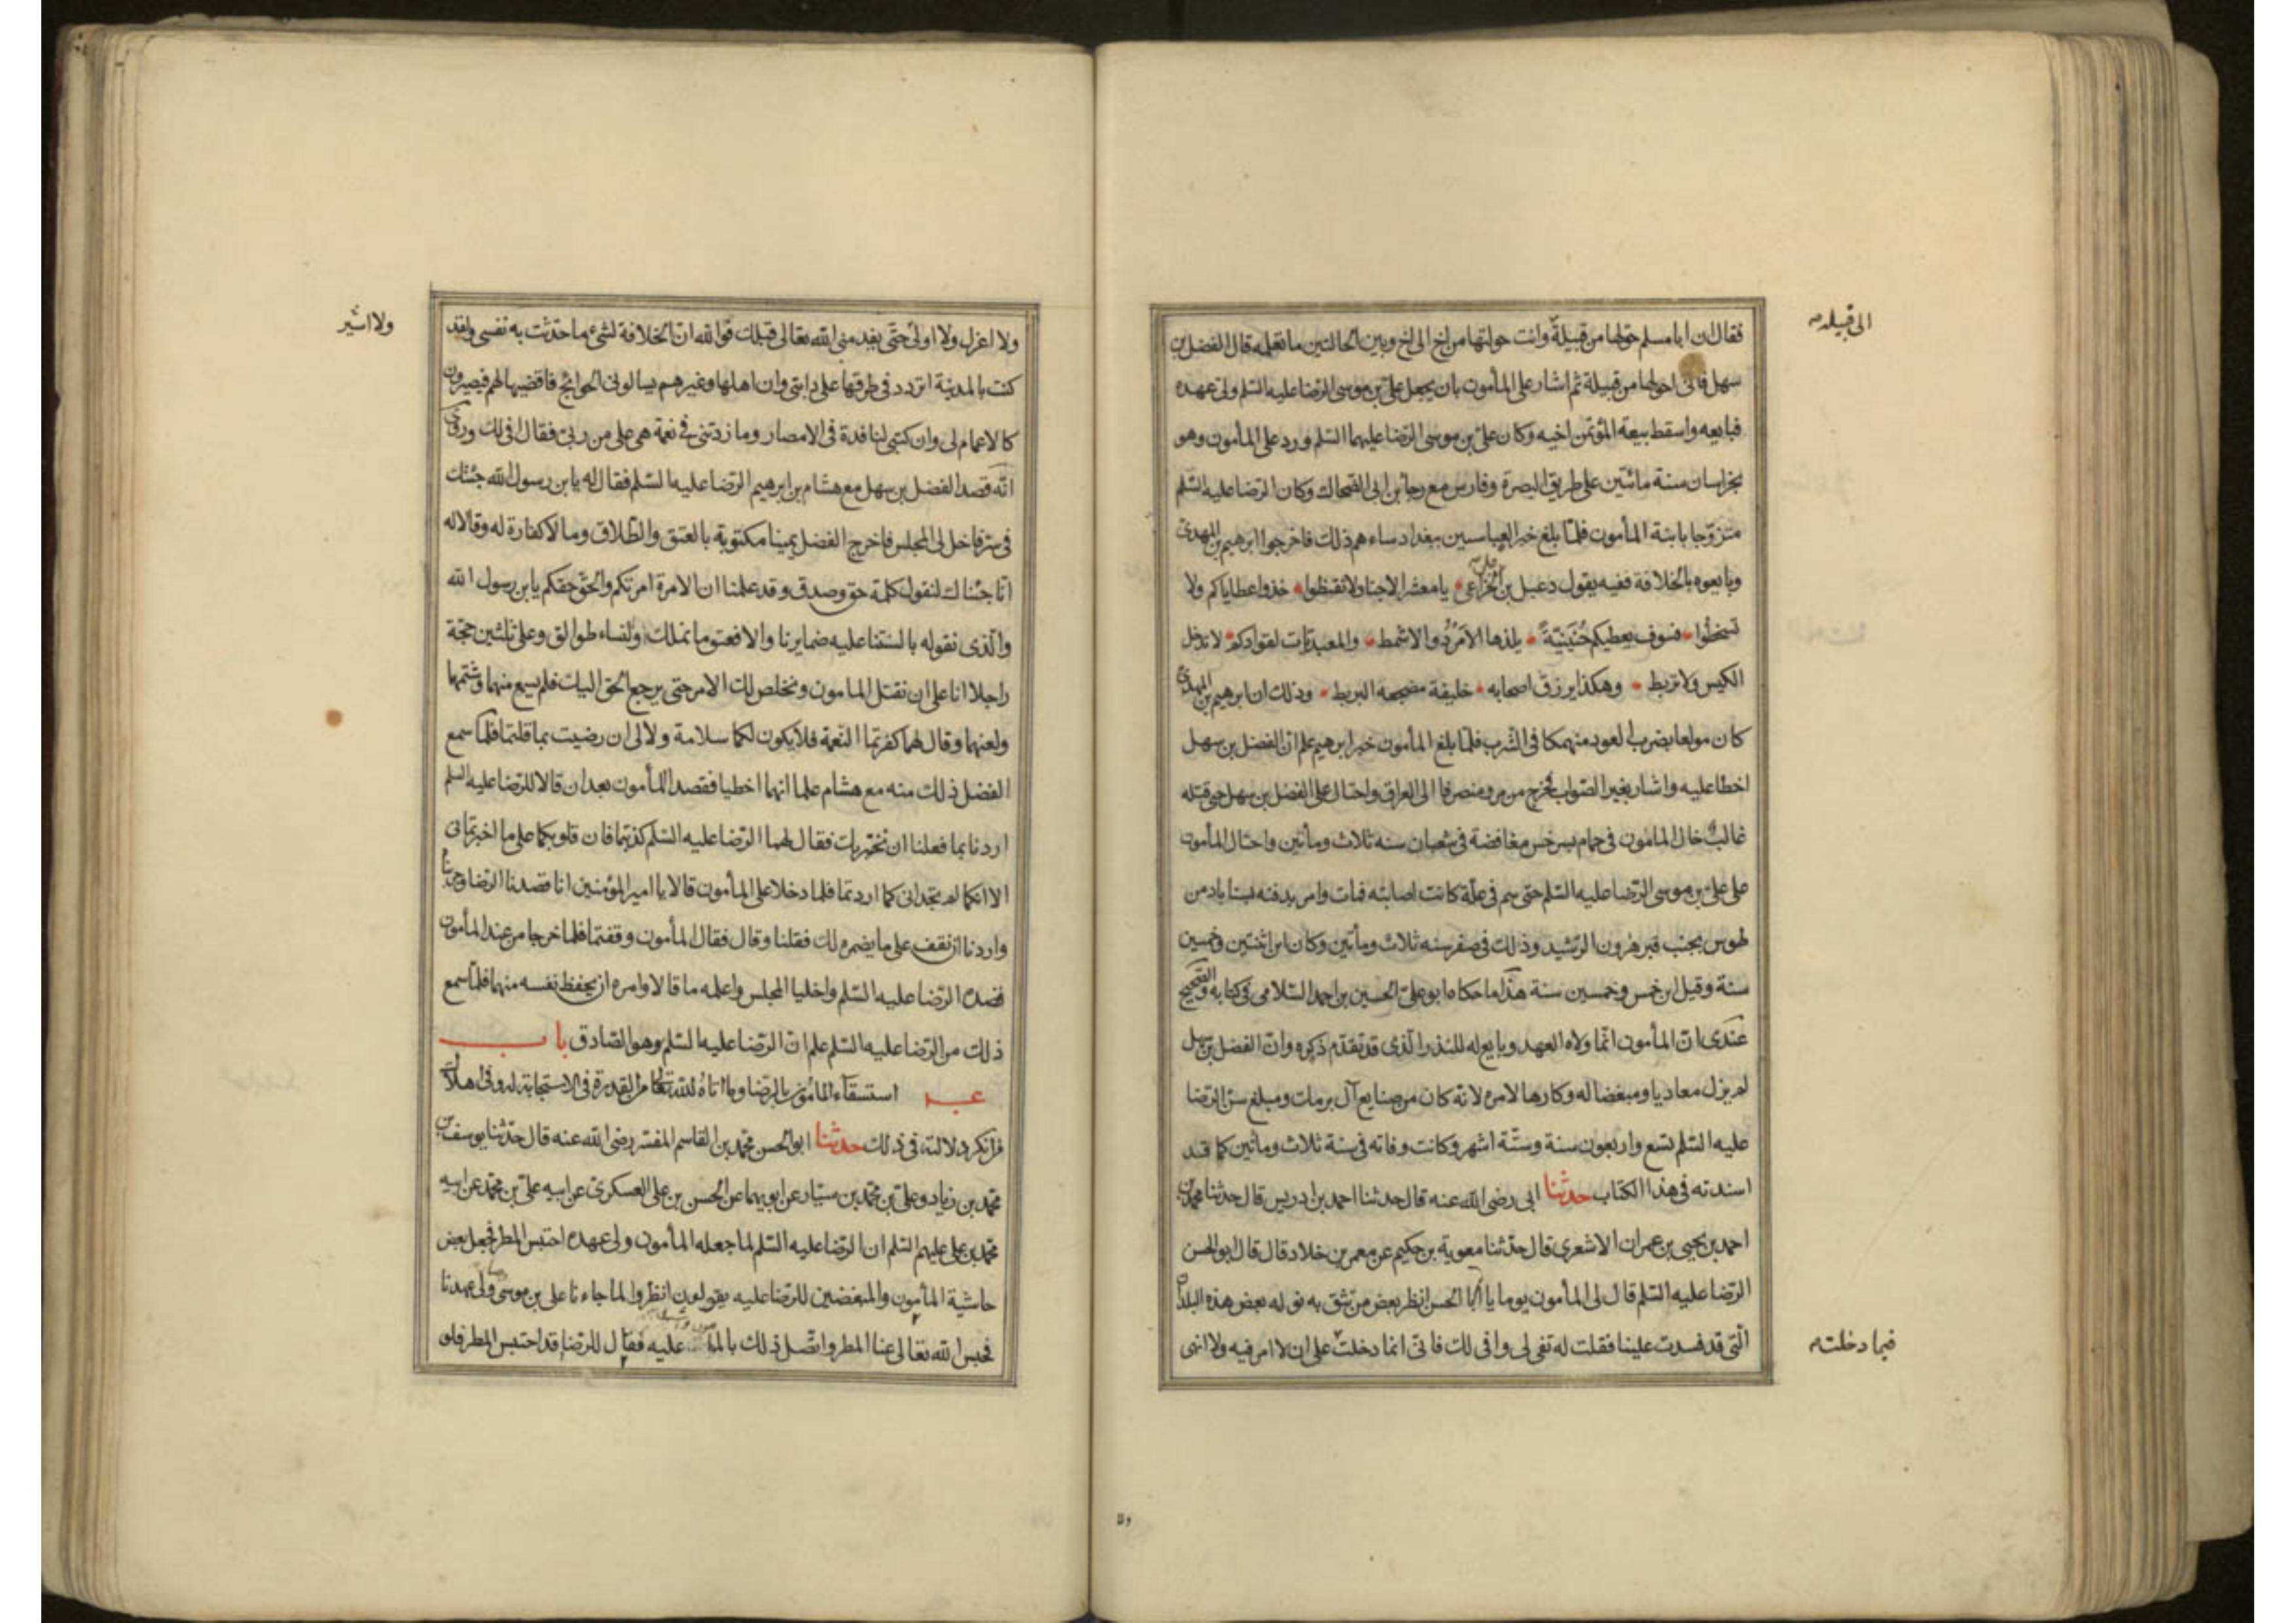 فقال ان ابا مسلم حولها من قبيلة وانت حولتها من اخ الى اخ وبين الحالتين ما تعلمه قال الفضل بن
الى قبيلة
سهل فانى احولها من قبيلة ثم اشار على المأمون بان يجعل على بن موسى الرضا عليه السلم ولى عهده
فبايعه واسقط بيعة المؤتمن اخيه وكان على بن موسى الرضا عليهما السلم ورد على المأمون وهو
بخراسان سنة مائتين على طريق البصرة وفارس مع رجا بن ابى الضحاك وكان الرضا عليه السلم
متزوّجا بابنة المأمون فلمّا بلغ خبره العباسيين ببغداد ساءهم ذلك فاخرجوا ابرهيم بن المهدى
وبايعوه بالخلافة ففيه يقول دعبل بن الخزاعى يا معشر الاجناد لا تقنطوا خذوا عطاياكم ولا
تسخطوا فسوف يعطيكم حُنَينِيّةً يلذها الأمرَدُ والاشمط والمعبديات لقوادكم لا تدخل
الكيس ولا تربط وهكذا يرزق اصحابه خليفة مصحفه البربط وذلك ان ابرهيم بن المهدى
كان مولعا بضرب العود منهمكا فى الشرب فلمّا بلغ المأمون خبر ابرهيم علم ان الفضل بن سهل
اخطا عليه واشار بغير الصواب فخرج من مرو منصرفا الى العراق واحتال على الفضل بن سهل حتى قتله
غالب خال المامون فى حمام بسرخس مغافصة فى شعبان سنه ثلاث ومأتين واحتال المأمون
على على بن موسى الرضا عليه السلم حتى سم فى علّة كانت اصابته فمات وامر بدفنه بسناباد من
طوس بجنب قبر هرون الرشيد وذلك فى صفر سنه ثلاث ومأتين وكان ابن اثنتين وخمسين
سنة وقيل ابن خمس وخمسين سنة هذا ما حكاه ابو على الحسين بن احمد السلامى فى كتابه والصحيح
عندى انّ المأمون انّما ولاه العهد وبايع له للنذر الّذى قد تقدّم ذكره وانّ الفضل بن سهل
لم يزل معاديا ومبغضا له وكارها لامره لانه كان من صنايع آل برمك ومبلغ سن الرضا
عليه السلم تسع واربعون سنة وستّة اشهر وكانت وفاته فى سنة ثلاث ومأتين كما قد
اسندته فى هذا الكتاب حدثنا ابى رضى الله عنه قال حدثنا احمد بن ادريس قال حدثنا محمد بن
احمد بن يحيى بن عمران الاشعرى قال حدّثنا معوية بن حكيم عن معمر بن خلاد قال قال ابو الحسن
الرضا عليه السلم قال لى المأمون يوما يا أبا الحسن انظر بعض من تثق به نوله بعض هذه البلدان
الّتى قد فسدت علينا فقلت له تفى لى وافى لك فانّى انما دخلت على ان لا امر فيه ولا انهى
فيما دخلت
ولا اعزل ولا اولى حتّى يقدمنى الله تعالى قبلك فو الله ان الخلافة لشئ ما حدّثت به نفسى ولقد
ولا اشير
كنت بالمدينة اتردد فى طرقها على دابتى وان اهلها وغيرهم يسالونى الحوائج فاقضيها لهم فيصيرون
كالاعمام لى وان كتبى لنافذة فى الامصار وما زدتنى فى نعمة هى على من ربّى فقال افى لك وروى
انّه قصد الفضل بن سهل مع هشام بن ابرهيم الرضا عليه السلم فقال له يا بن رسول الله جئتك
فى سر فاخل لى المجلس فاخرج الفضل يمينا مكتوبة بالعتق والطلاق وما لا كفارة له وقالا له
انّا جئناك لنقول كلمة حق وصدق وقد علمنا ان الامرة امرتكم والحق حقكم يا بن رسول الله
والّذى نقوله بالسنتنا عليه ضمايرنا والا فعتق ما نملك والنساء طوالق وعلى ثلثين حجّة
راجلا انا على ان نقتل المامون ونخلص لك الامر حتى يرجع الحق اليك فلم يسمع منهما وشتمهما
ولعنهما وقال لهما كفرتما النعمة فلا يكون لكما سلامة ولا لى ان رضيت بما قلتما فلمّا سمع
الفضل ذلك منه مع هشام علما انهما اخطيا فقصد المأمون بعد ان قالا للرضا عليه السلم
اردنا بما فعلنا ان نختبرك فقال لهما الرضا عليه السلم كذبتما فان قلوبكما على ما اخبرتمانى
الا انكما لم تجدانى كما اردتما فلما دخلا على المأمون قالا يا امير المؤمنين انا قصدنا الرضا وجربناه
واردنا ان نقف على ما يضمره لك فقلنا وقال فقال المأمون وفقتما فلما خرجا من عند المأمون
قصده الرضا عليه السلم واخليا المجلس واعلمه ما قالا وامره ان يحفظ نفسه منهما فلمّا سمع
ذلك من الرضا عليه السلم علم انّ الرضا عليه السلم وهو الصّادق باب
استسقآء المأمون بالرضا وما اتاهُ الله تعالى من القدرة فى الاستجابة له وفى اهلاك
من انكر دلالته فى ذلك حدثنا ابو الحسن محمّد بن القاسم المفسّر رضى الله عنه قال حدّثنا يوسف بن
محمّد بن زياد وعلى بن محمّد بن سيّار عن ابويهما عن الحسن بن على العسكرى عن ابيه على بن محمّد عن ابيه
محمّد بن على عليهم السلم ان الرضا عليه السلم لما جعله المأمون ولى عهده احتبس المطر فجعل بعض
حاشية المأمون والمتعصبين للرضا عليه يقولون انظروا لما جاءنا على بن موسى ولى عهدنا
فحبس الله تعالى عنا المطر واتّصل ذلك بالمأمون عليه فقال للرضا قد احتبس المطر فلو